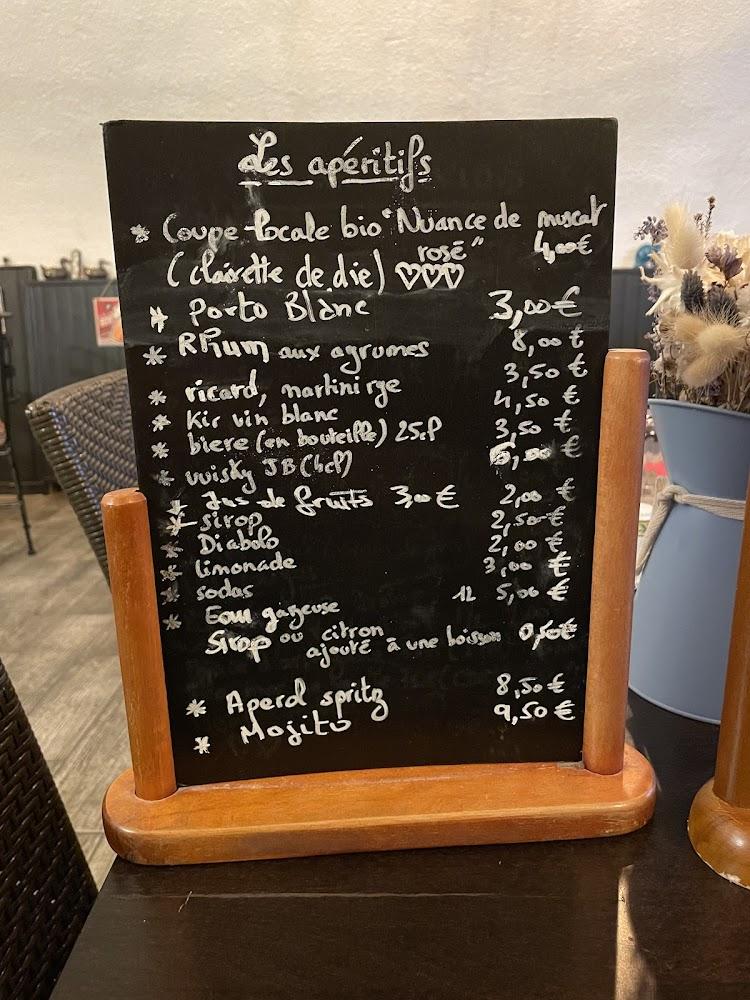 Les apéritifs
* Coupe locale bio "Nuance de muscat
rosé" 4,00€
(clairette de die) ♡♡♡
* Porto Blanc 3,00€
* Rhum aux agrumes 8,00€
* ricard, martini rge 3,50€
* Kir vin blanc 4,50€
* biere (en bouteille) 25cl 3,50€
* wisky JB (4cl) 6,00€
* Jus de fruits 3,00€
* sirop 2,00€
* Diabolo 2,50€
* limonade 2,00€
* sodas 3,00€
* Eau gazeuse 1L 5,00€
Sirop ou citron
ajouté à une boisson 0,50€
* Aperol spritz 8,50€
* Mojito 9,50€